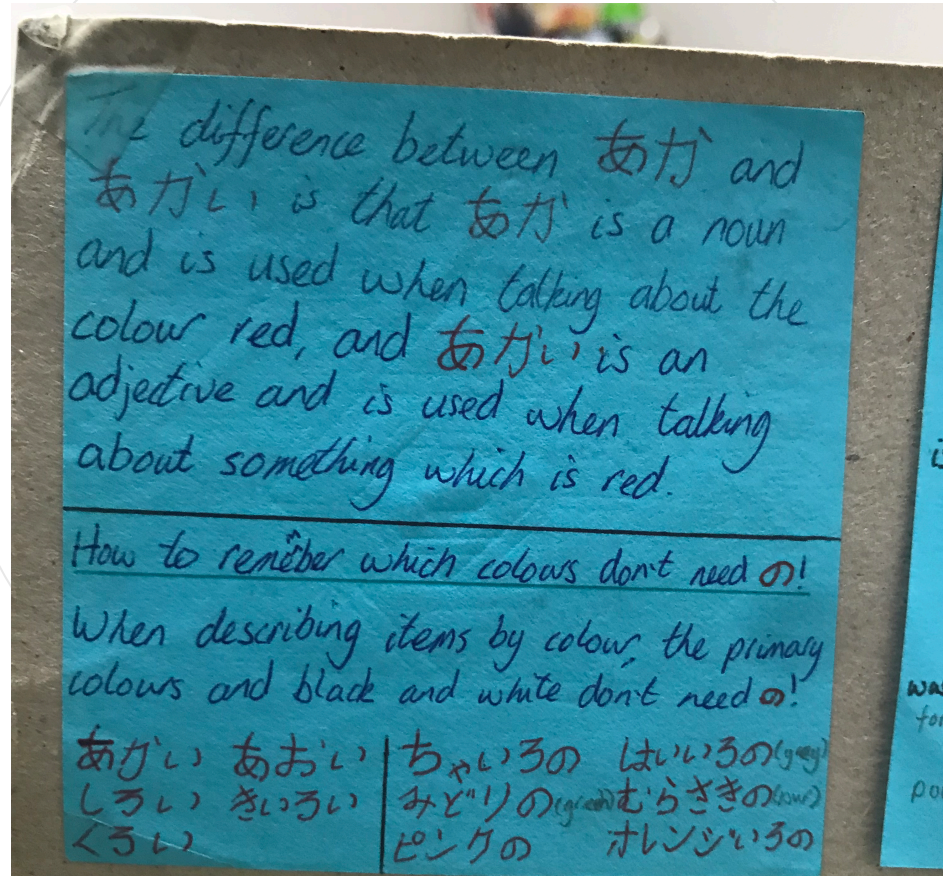 The difference between あか and
あかい is that あか is a noun
and is used when talking about the
colour red, and あかい is an
adjective and is used when talking
about something which is red.
How to remember which colours don't need の!
When describing items by colour, the primary
colours and black and white don't need の!
あかい あおい
しろい きいろい
くろい
ちゃいろの はいいろの (grey)
みどりの (green) むらさきの
ピンクの オレンジいろの
wa
for
po